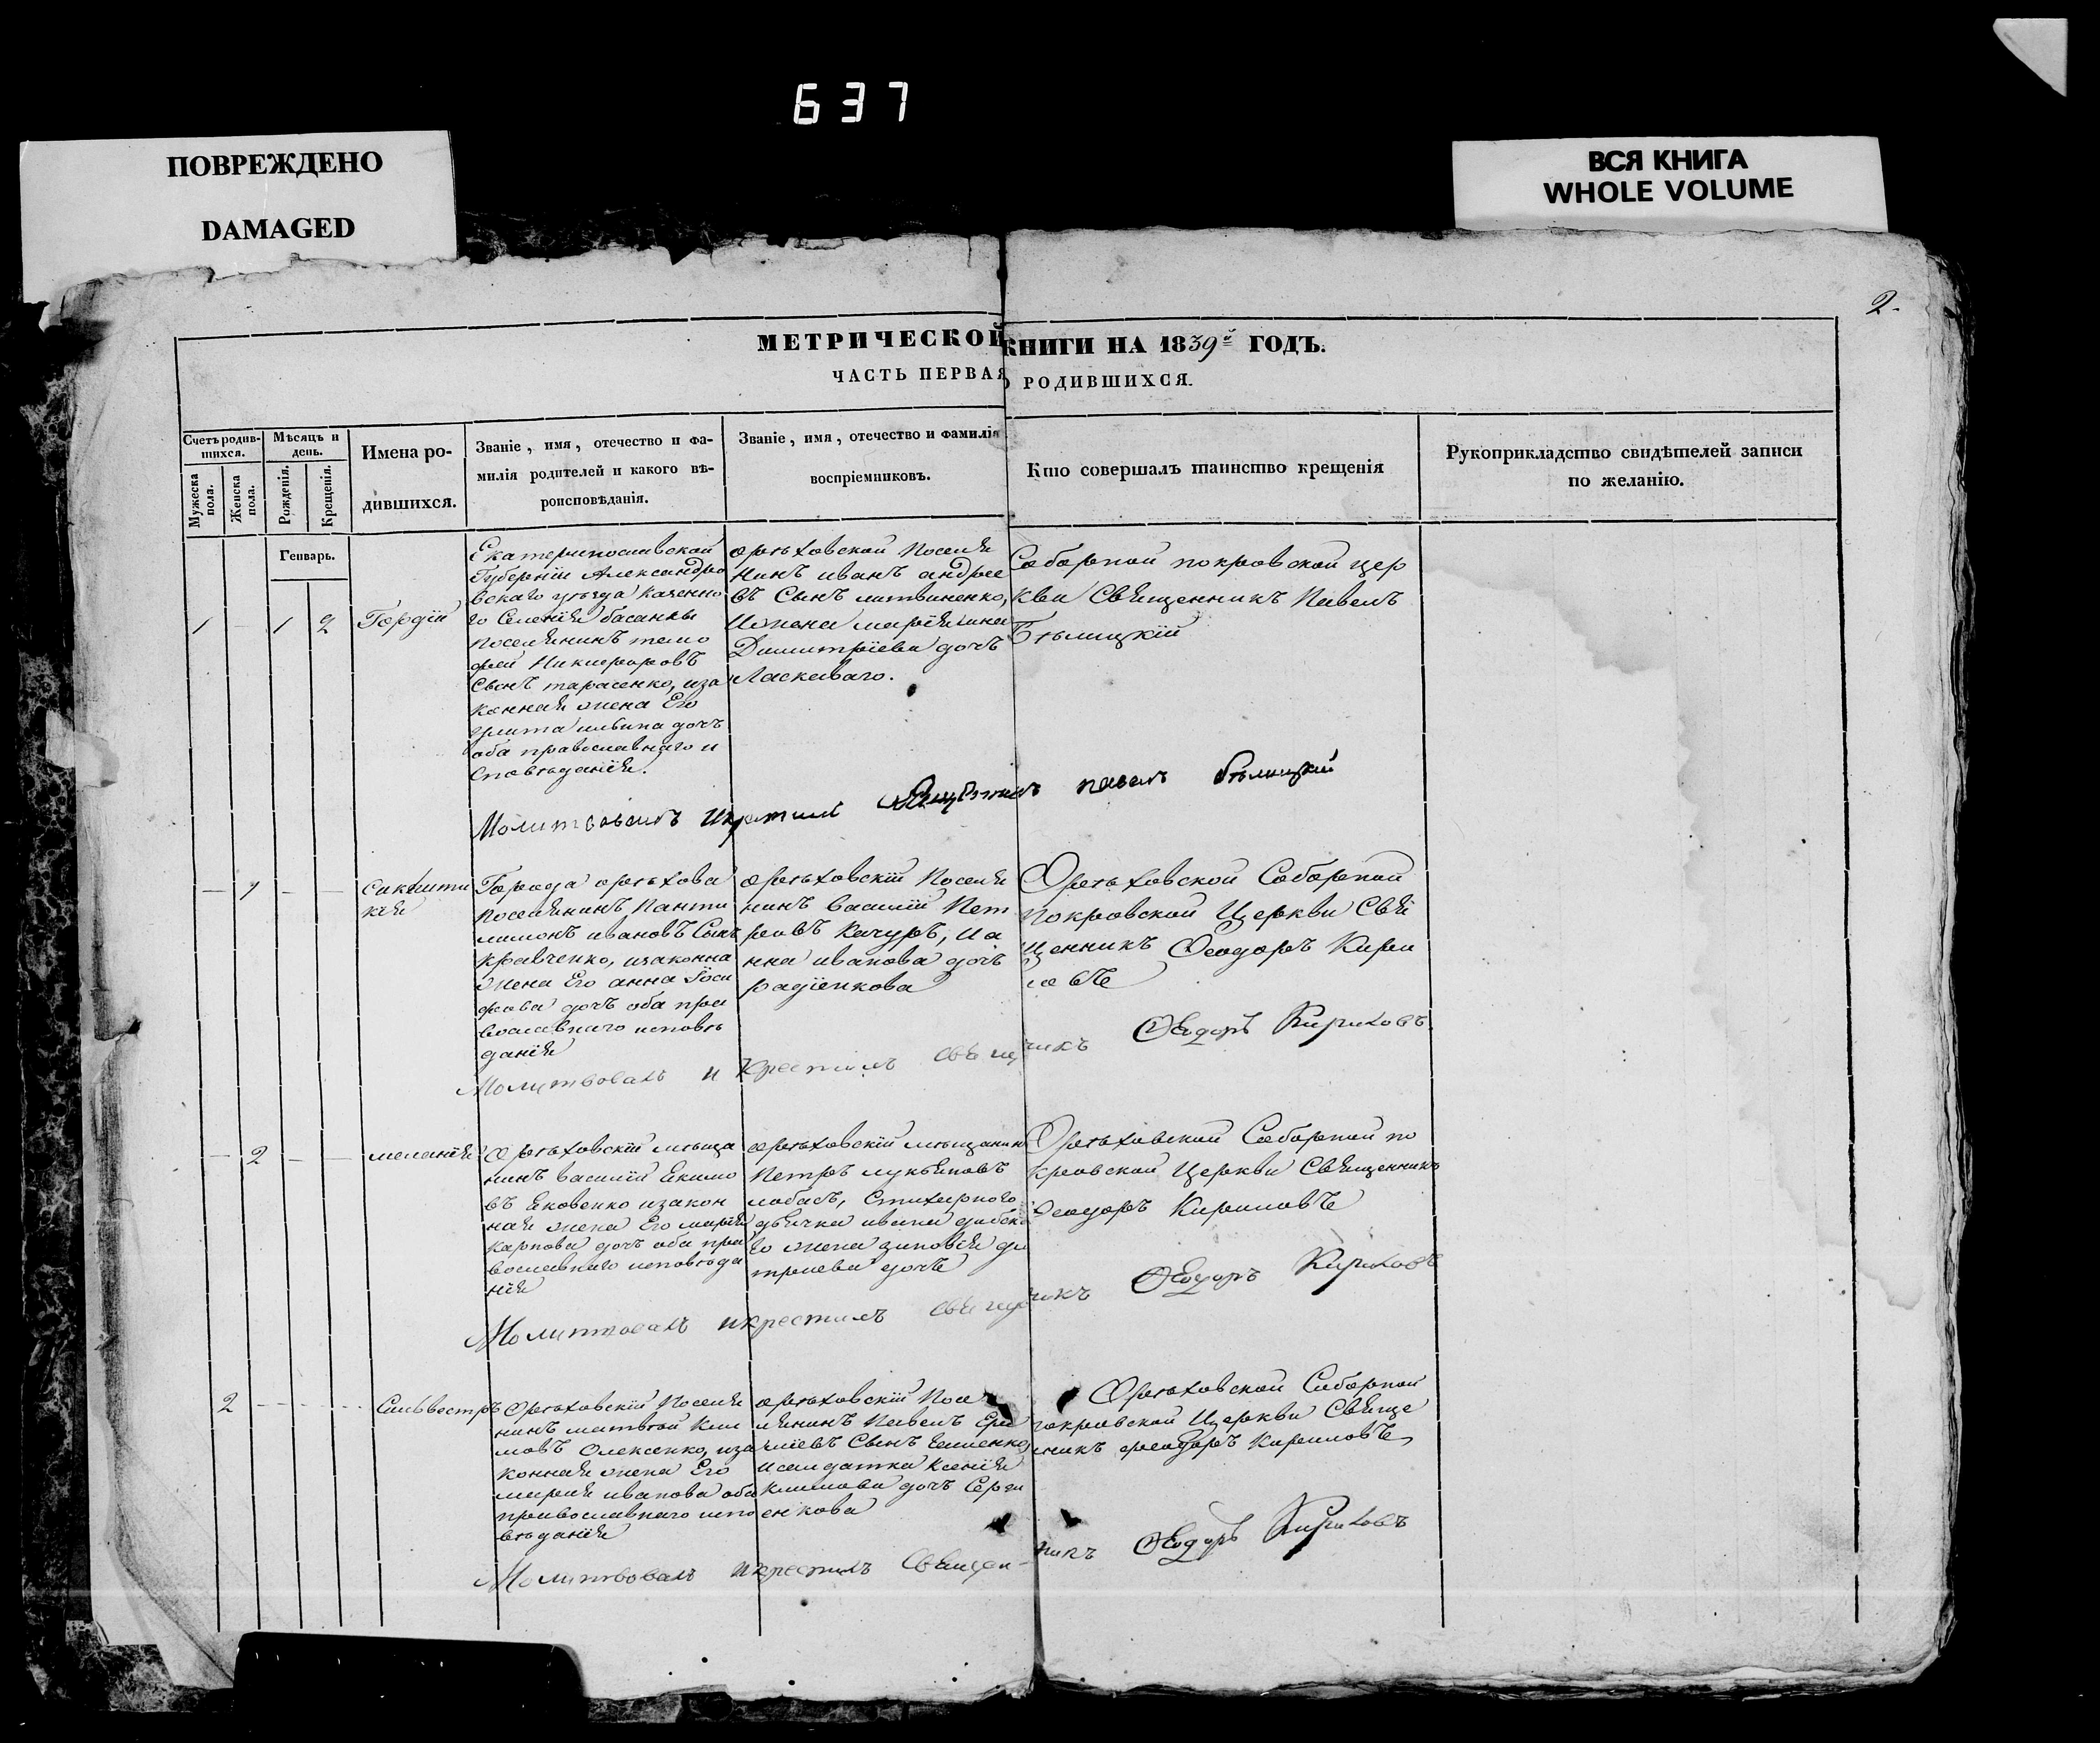 637
ПОВРЕЖДЕНО
DAMAGED
ВСЯ КНИГА
WHOLE VOLUME
2.
МЕТРИЧЕСКОЙ КНИГИ НА 1839й ГОДЪ.
ЧАСТЬ ПЕРВАЯ О РОДИВШИХСЯ.
Счетъ родив-
шихся.
Мужеска пола.
Женска пола.
Мѣсяцъ и
день.
Рожденія.
Крещенія.
Имена ро-
дившихся.
Званіе, имя, отечество и фа-
милія родителей и какого вѣ-
роисповѣданія.
Званіе, имя, отечество и фамилія
воспріемниковъ.
Кто совершалъ таинство крещенія
Рукоприкладство свидѣтелей записи
по желанію.
Генварь.
1 – 1 2
Гордій
Екатеринославской
Губерніи Александро
вскаго уѣзда казенно
го Селенія басанки
поселянинъ тимо
фей Никифоровъ
Сынъ тарасенко, иза
конная жена Его
ульита дочъ
оба православнаго и
сповѣданія.
орѣховской Поселя
нинъ иванъ андрее
въ Сынъ литвиненко,
Димитріева дочъ
Ласкаваго.
Соборной покровской цер
кви Священникъ Павелъ
Бѣлицкій
Молитвовалъ Икрестилъ Священникъ павелъ Бѣлицкій
– 1 – –
Синклити
кія
Города орѣхова
поселянинъ Панти
лимонъ ивановъ Сынъ
кравченко, изаконна
жена Его анна Іоси
фова дочъ оба пра
вославнаго исповѣ
данія
орѣховскій Поселя
нинъ василій Пет
ровъ Качуръ, иа
нна иванова дочъ
радіенкова
Орѣховской Соборной
покровской Церкви Свя
щенникъ Феодоръ Кири
ловъ
Молитвовалъ и крестилъ Священникъ Феодоръ Кириловъ
– 2 – –
меланія
Орѣховскій мѣща
нинъ василій Екимо
въ Яковенко изакон
ная жена Его марія
карпова дочъ оба пра
вославнаго исповѣда
нія
орѣховскій мѣщанинъ
Петръ лукьяновъ
лобасъ, Стихарного
дьячка ивана
го жена зиновія ди
тріева дочъ
Орѣховской Соборной по
кровской Церкви Священникъ
Феодоръ Кириловъ
Молитвовалъ икрестилъ Священникъ Феодоръ Кириловъ
2 – – –
Сильвестръ
Орѣховскій Поселя
нинъ матвѣй Кли
мовъ Олексенко, иза
конная жена Его
марія иванова оба
православнаго испо
вѣданія
орѣховскій Посе
лянинъ Павелъ Ерм
Сынъ
исалдатка Ксенія
Климова дочъ Серги
енкова
Орѣховской Соборной
покровской Церкви Свяще
нникъ феодоръ Кириловъ
Молитвовалъ икрестилъ Священ-никъ Феодоръ Кириловъ